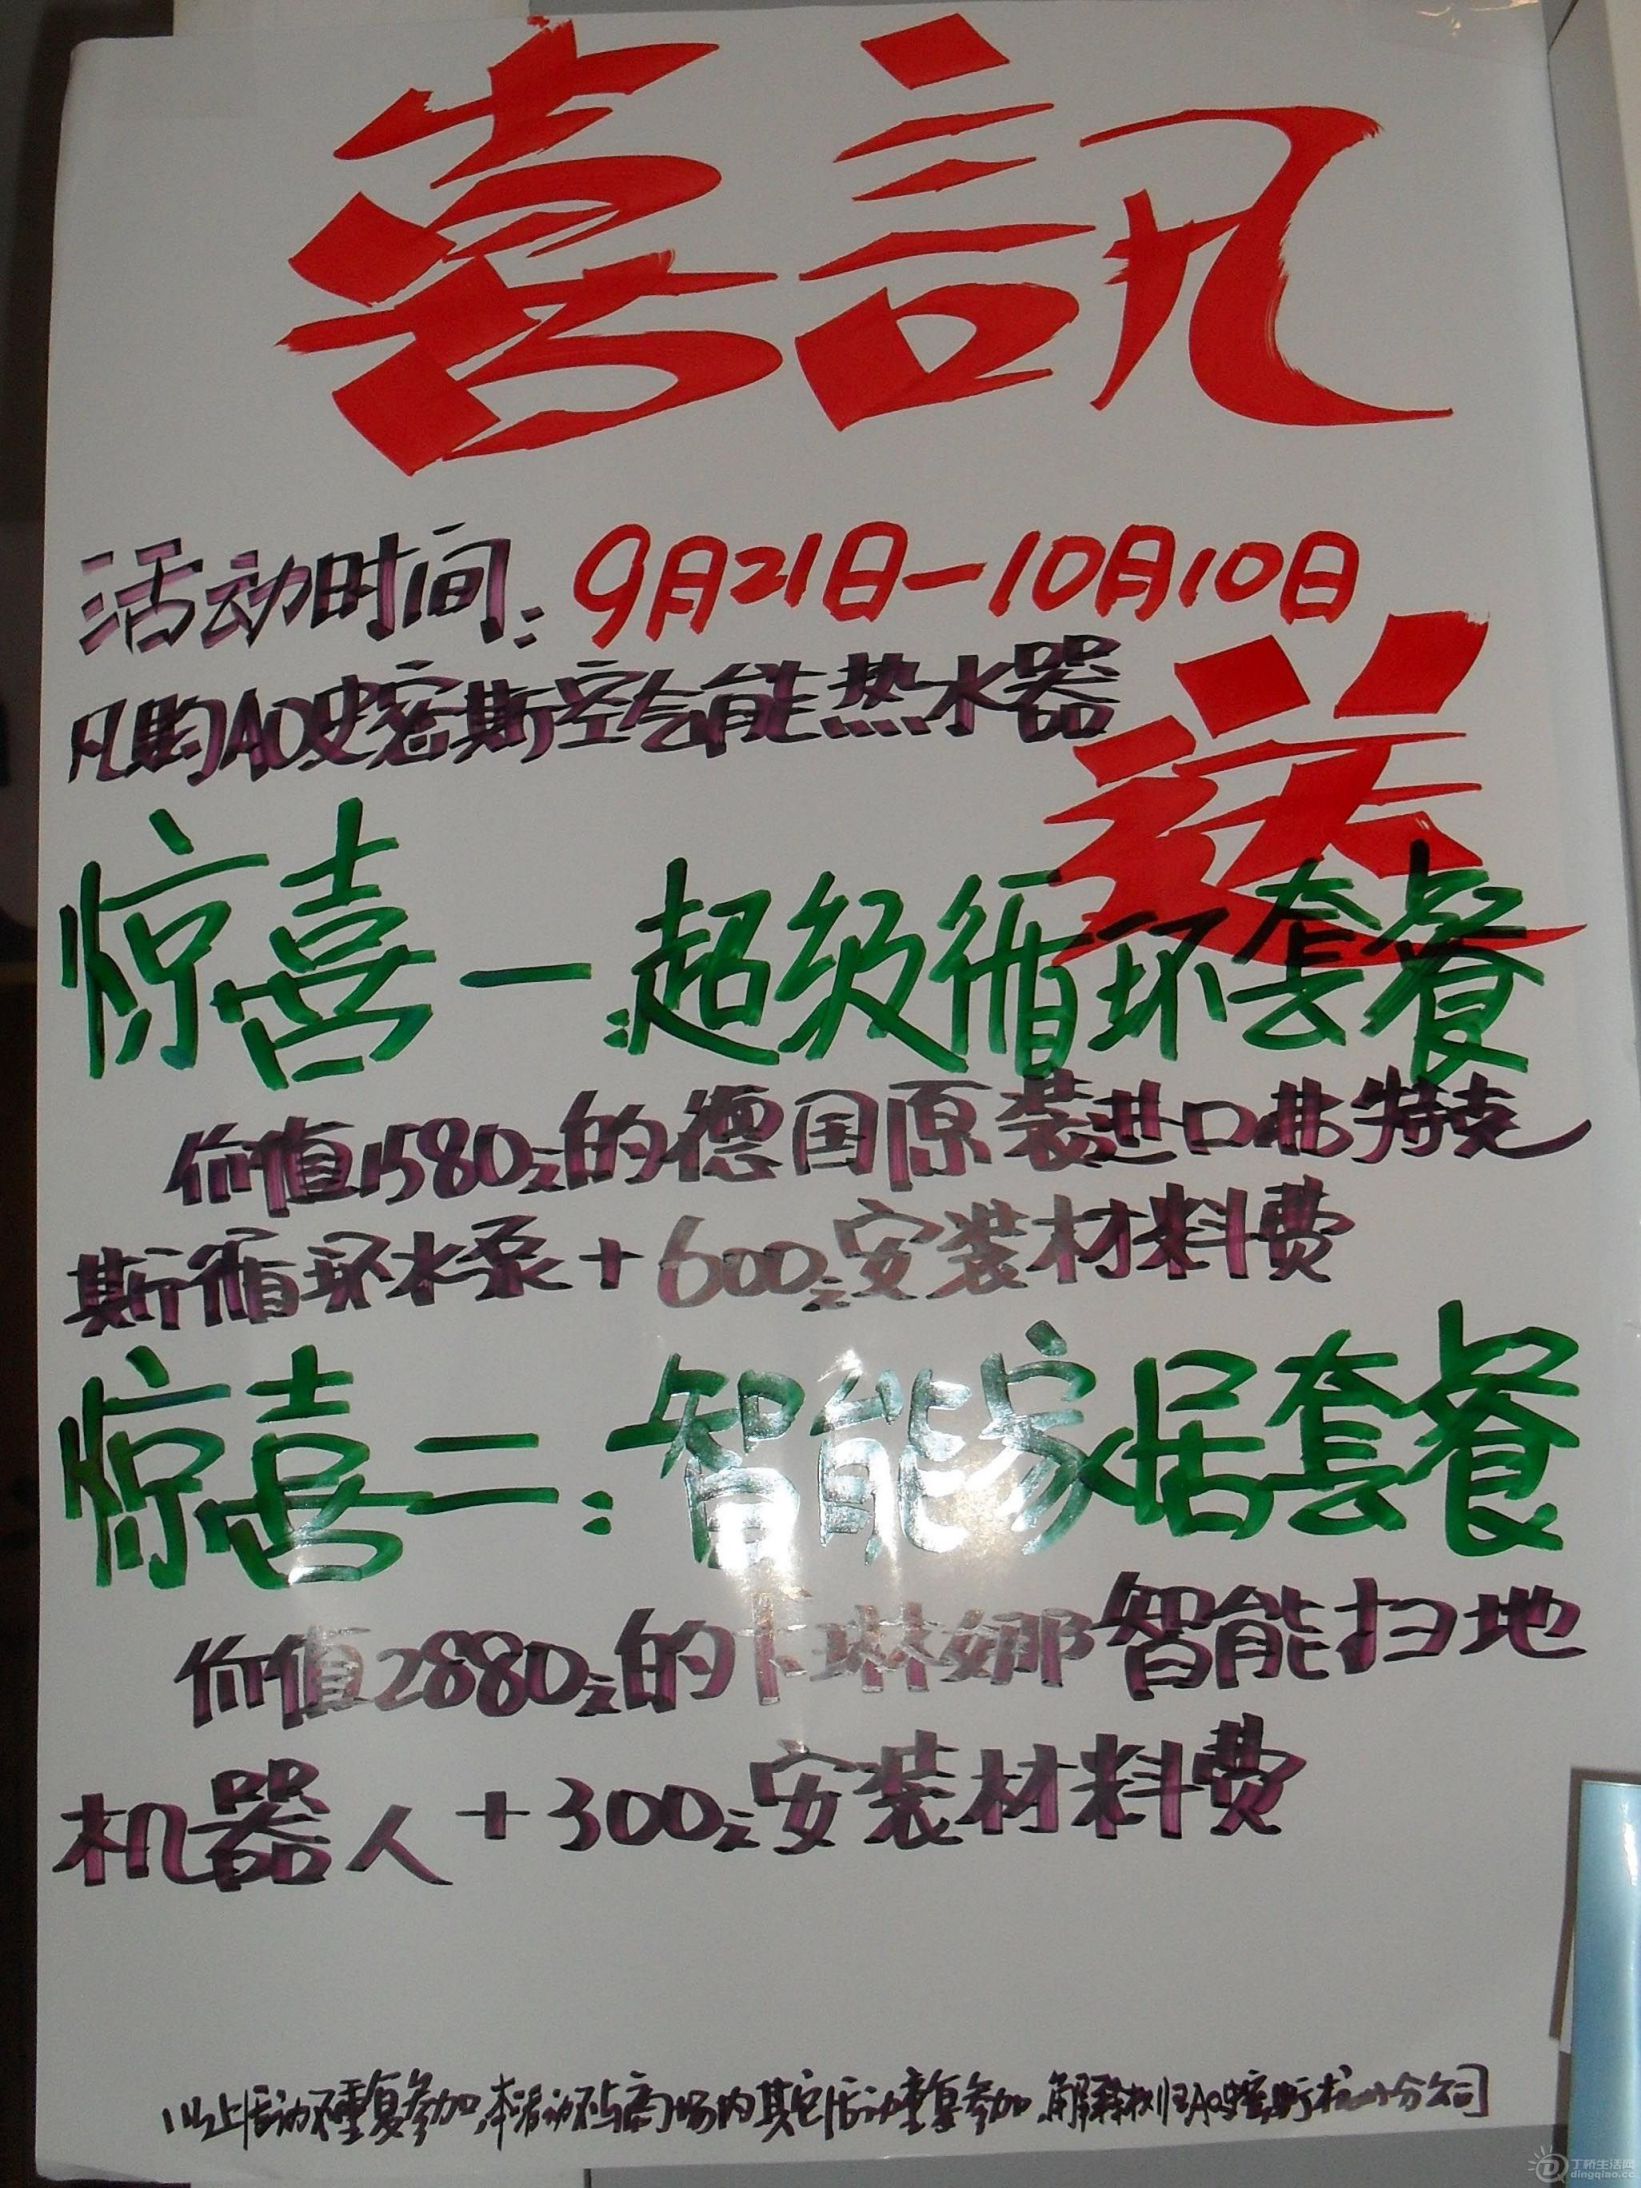 喜訊
活动时间:9月21日—10月10日
凡购AO史密斯空气能热水器
送
惊喜一:超级循环套餐
价值1580元的德国原装进口弗特克
斯循环水泵+600元安装材料费
惊喜二:智能家居套餐
价值2880元的卡琳娜智能扫地
机器人+300元安装材料费
以上活动不重复参加,本活动不与商场内其它活动重复参加,解释权归AO史密斯杭州分公司
丁桥生活网
dingqiao.cc